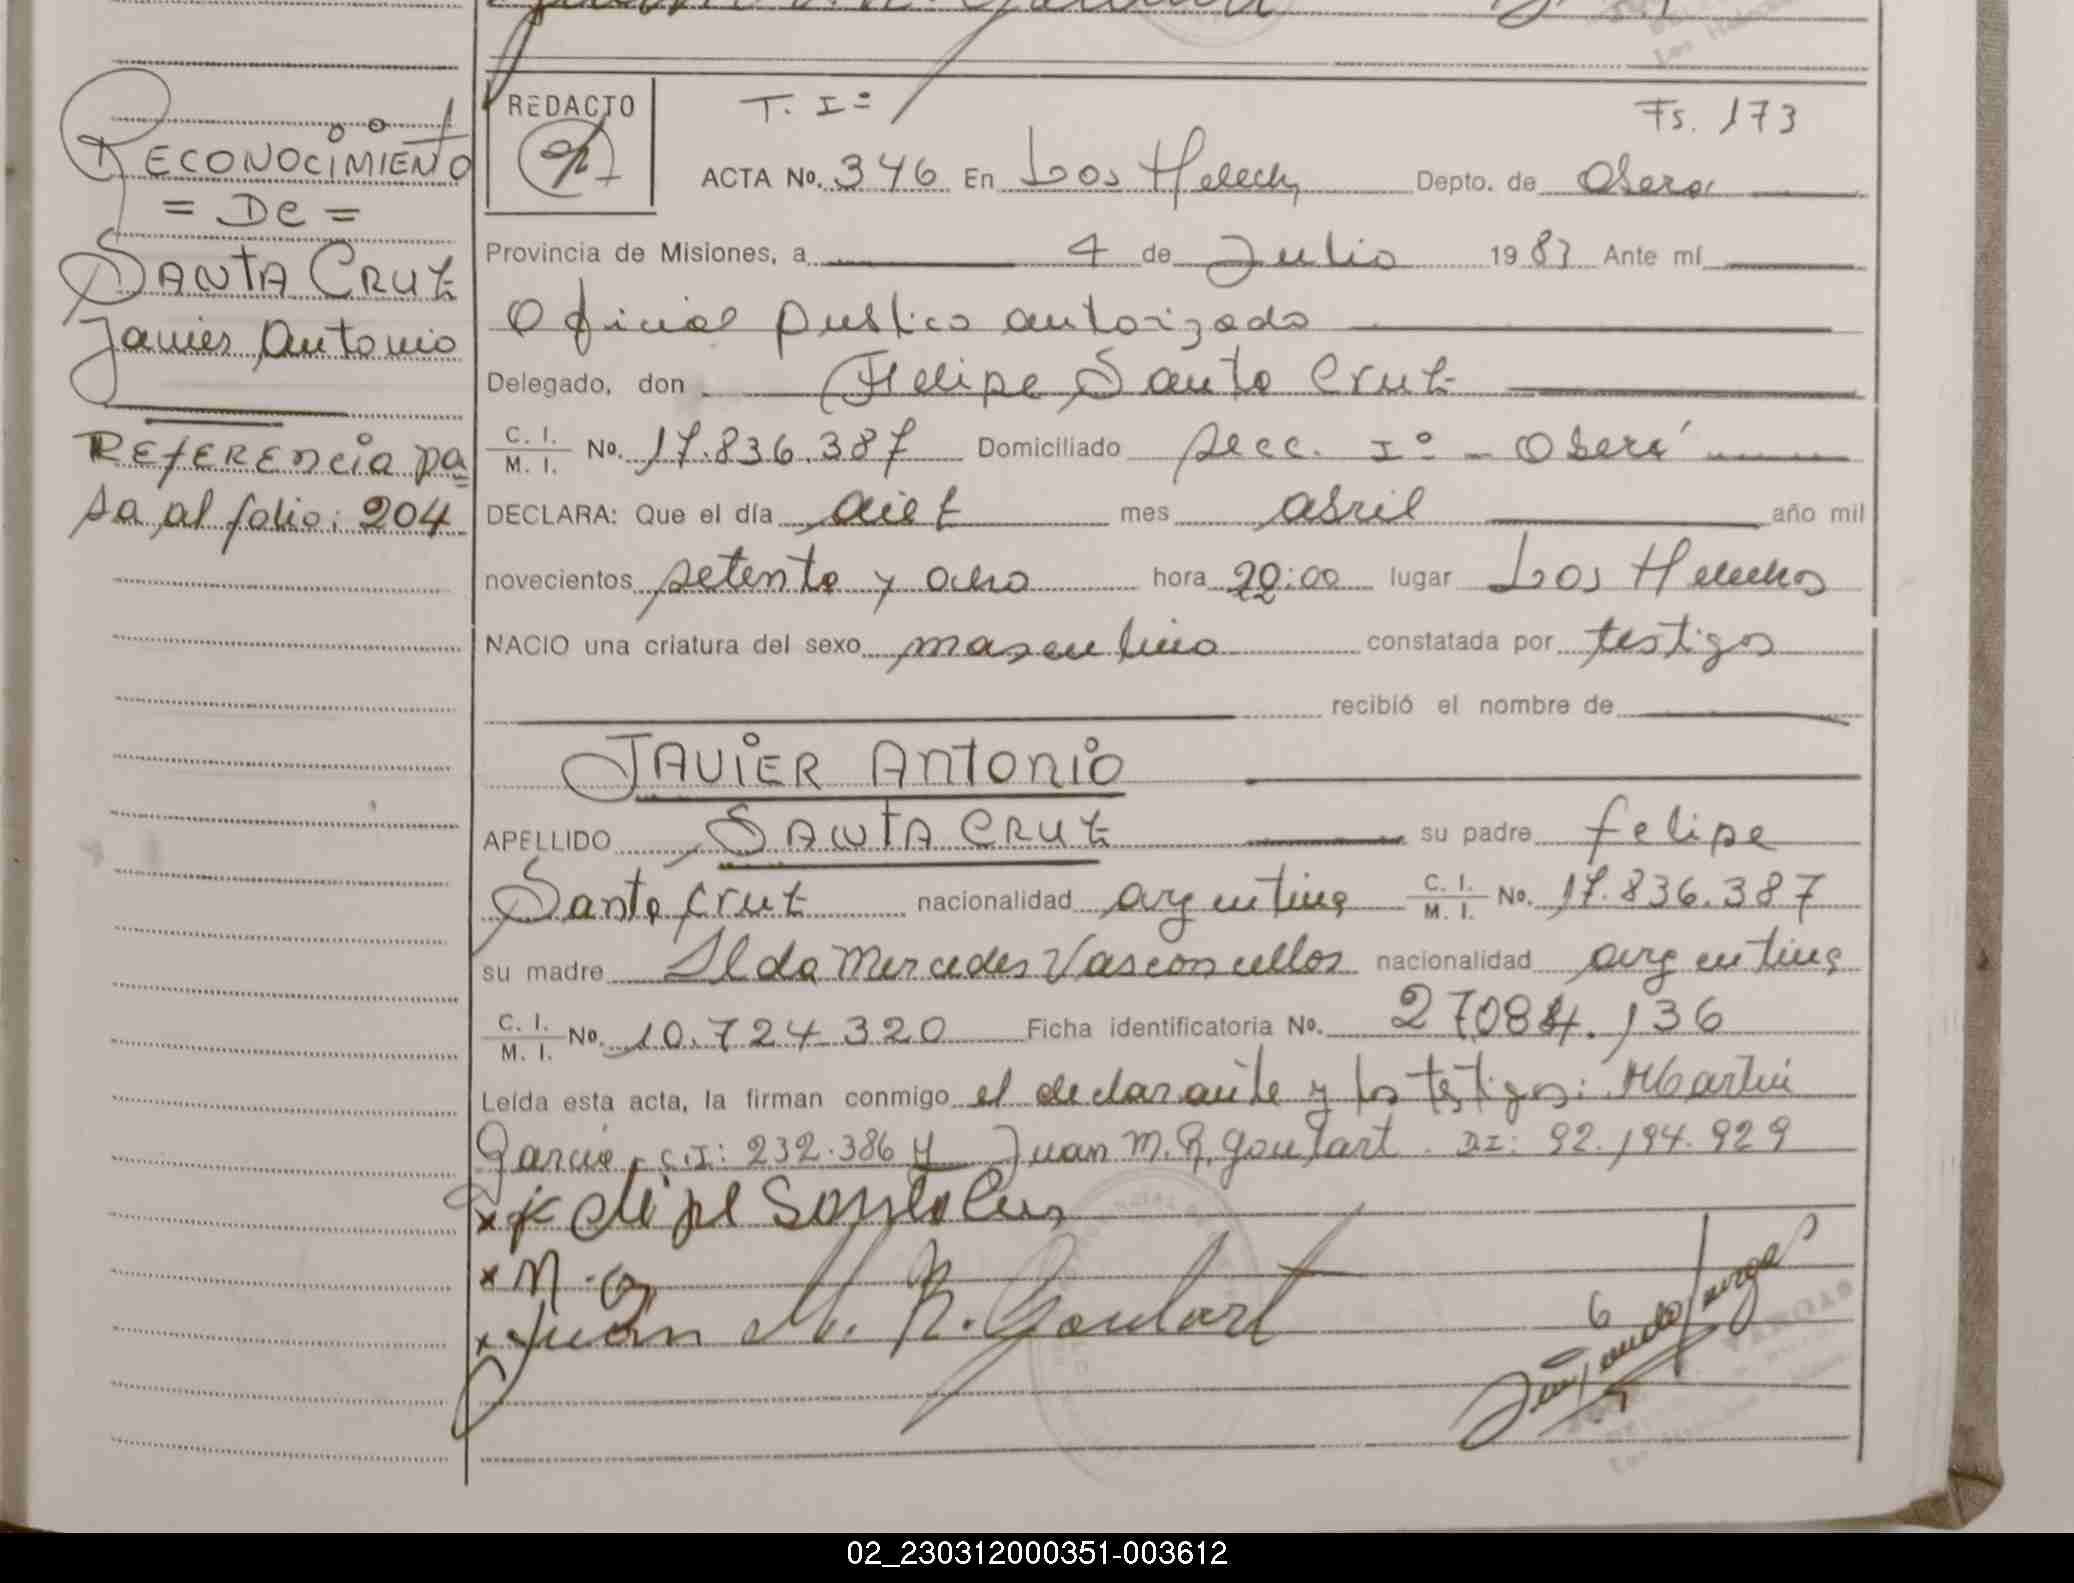 RECONOCIMIENTO
= DE =
SANTA CRUZ
Javier Antonio
REFERENCIA pa
sa al folio: 204
REDACTO
T. Iº
Fs. 173
ACTA Nº. 346 En Los Helechos Depto. de Oberá
Provincia de Misiones, a 4 de Julio 1983 Ante mí
Oficial publico autorizado
Delegado, don Felipe Santa Cruz
C. I. / M. I. Nº. 17.836.387 Domiciliado secc. Iº - Oberá
DECLARA: Que el día diez mes abril año mil
novecientos setenta y ocho hora 20:00 lugar Los Helechos
NACIO una criatura del sexo masculino constatada por testigos
recibió el nombre de
JAVIER ANTONIO
APELLIDO SANTA CRUZ su padre Felipe
Santa Cruz nacionalidad argentina C. I. / M. I. Nº. 17.836.387
su madre Ilda Mercedes Vasconcellos nacionalidad argentina
C. I. / M. I. Nº. 10.724.320 Ficha identificatoria Nº. 27.084.136
Leída esta acta, la firman conmigo el declarante y los testigos: Martin
Garcia C.I: 232.386 y Juan M. R. Goulart. DI: 92.194.929
x Felipe Santa Cruz
x M. G
x Juan M. R. Goulart
02_230312000351-003612